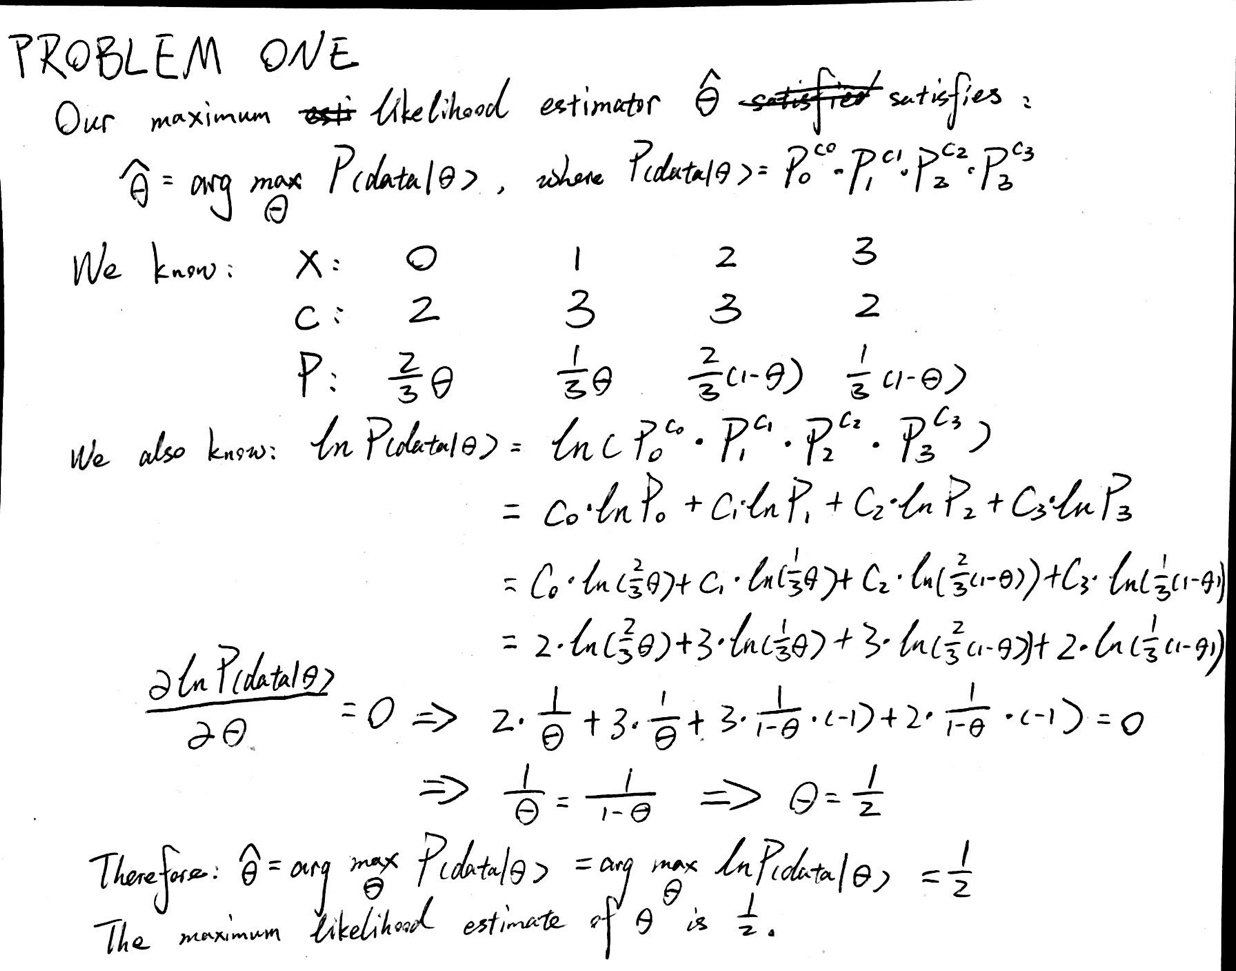 PROBLEM ONE
Our maximum likelihood estimator θ̂ satisfies:
θ̂ = arg max_θ P(data|θ), where P(data|θ) = P₀^C₀ · P₁^C₁ · P₂^C₂ · P₃^C₃
We know: X: 0 1 2 3
C: 2 3 3 2
P: 2/3 θ 1/3 θ 2/3 (1-θ) 1/3 (1-θ)
We also know: ln P(data|θ) = ln( P₀^C₀ · P₁^C₁ · P₂^C₂ · P₃^C₃ )
= C₀·ln P₀ + C₁·ln P₁ + C₂·ln P₂ + C₃·ln P₃
= C₀·ln(2/3 θ) + C₁·ln(1/3 θ) + C₂·ln(2/3 (1-θ)) + C₃·ln(1/3 (1-θ))
= 2·ln(2/3 θ) + 3·ln(1/3 θ) + 3·ln(2/3 (1-θ)) + 2·ln(1/3 (1-θ))
∂ln P(data|θ)/∂θ = 0 ⇒ 2·1/θ + 3·1/θ + 3·1/(1-θ)·(-1) + 2·1/(1-θ)·(-1) = 0
⇒ 1/θ = 1/(1-θ) ⇒ θ = 1/2
Therefore: θ̂ = arg max_θ P(data|θ) = arg max_θ ln P(data|θ) = 1/2
The maximum likelihood estimate of θ is 1/2.